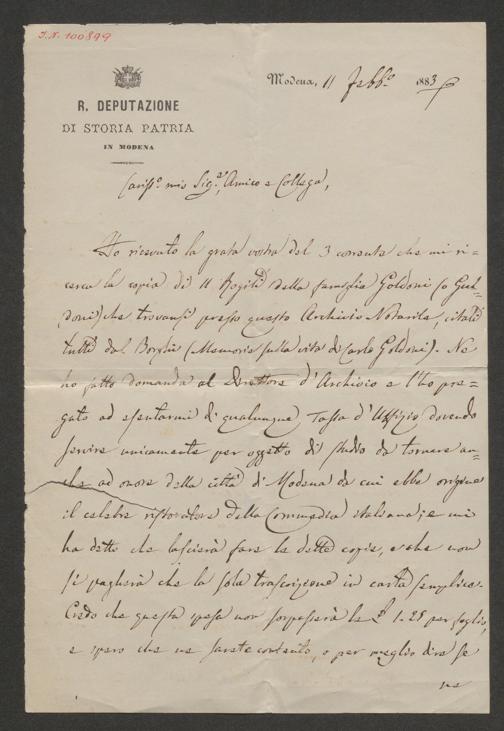 I.N. 100899
Modena, 11 Febb.º 1883
R. DEPUTAZIONE
DI STORIA PATRIA
IN MODENA
Cariss.º mio Sig.r Amico e Collega,
Ho ricevuto la grata vostra del 3 corrente che mi ri=
cerca la copia di 11 Rogiti della famiglia Goldoni (o Gul=
doni) che trovansi presso questo Archivio Notarile, citati
tutti dal Borghi (Memorie sulla vita di Carlo Goldoni). Ne
ho fatto domanda al Direttore d'Archivio e l'ho pre=
gato ad esentarmi di qualunque Tassa d'Uffizio dovendo
servire unicamente per oggetto di studio da tornare an=
che ad onore della città di Modena da cui ebbe origine
il celebre ristoratore della Commedia italiana; e mi
ha detto che lascierà fare le dette copie, e che non
si pagherà che la sola trascrizione in carta semplice.
Credo che questa spesa non sorpasserà le £ 1.25 per foglio,
e spero che ne sarete contento, o per meglio dire se
ne